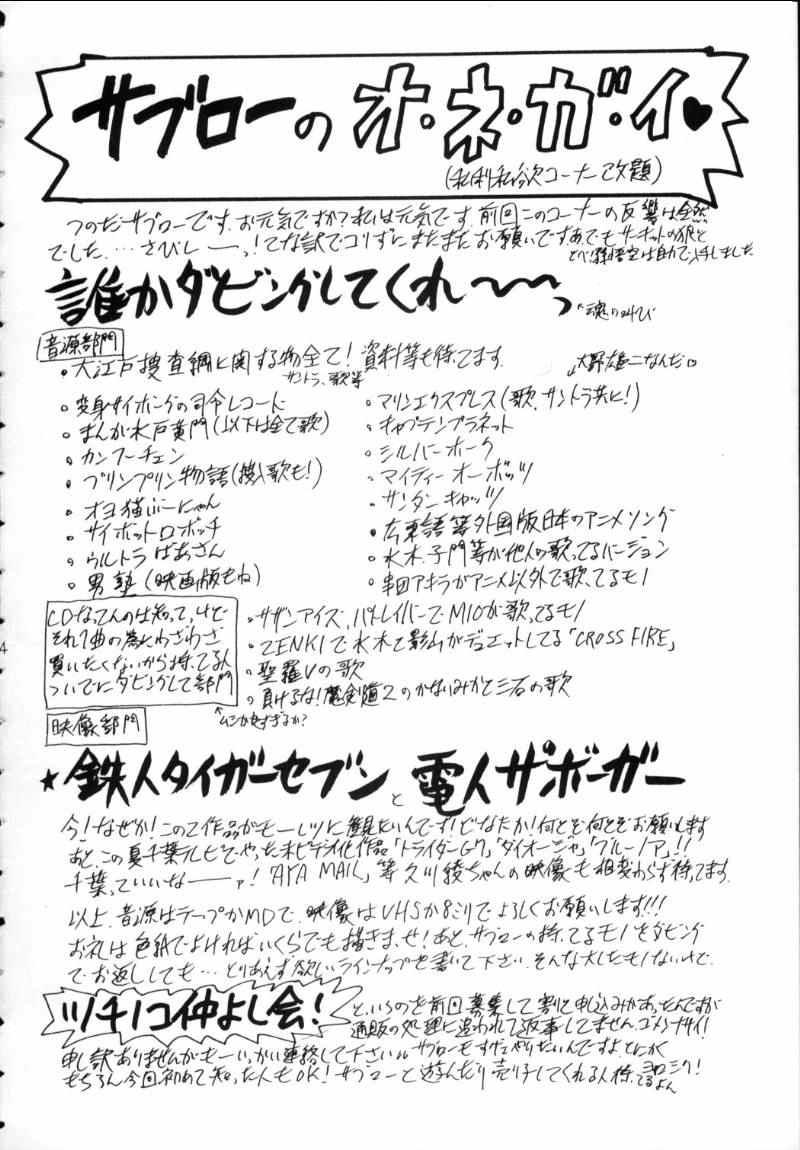 サブローの オ・ネ・ガ・イ♥
(私利私欲コーナー改題)
つのだサブローです。お元気ですか?私は元気です。前回このコーナーの反響は全然
でした…。さびしーーっ!てな訳でコリずにまたまたお願いです。あ、でもサーキットの狼と
とべ!孫悟空は自力で入手しました。
誰かダビングしてくれ〜〜っ
↖魂の叫び
音源部門
・大江戸捜査網に関する物全て!資料等も待ってます。
サントラ、歌等
・変身サイボーグの司令レコード
・まんが水戸黄門(以下は全て歌)
・カンフーチェン
・プリンプリン物語(挿入歌も!)
・オヨ猫ぶーにゃん
・サイボットロボッチ
・ウルトラばあさん
・男塾(映画版もね)
大野雄二なんだ
・マリンエクスプレス(歌、サントラ共に!)
・キャプテンプラネット
・シルバーホーク
・マイティーオーボッツ
・サンダーキャッツ
・広東語等外国版日本のアニメソング
・水木、子門等が他人の歌ってるバージョン
・串田アキラがアニメ以外で歌ってるモノ
CDなってんのは知ってっけど
それ1曲の為にわざわざ
買いたくないから持ってる人
ついでにダビングして部門
↖ムシが良すぎるか?
・サザンアイズ、パトレイバーでMIOが歌ってるモノ
・ZENKIで水木と影山がデュエットしてる「CROSS FIRE」
・聖羅Vの歌
・負けるな!魔剣道2のかないみかと三石の歌
映像部門
★鉄人タイガーセブンと電人ザボーガー
今!なぜか!この2作品がモーレツに観たいんです!どなたか!何とぞ何とぞお願いします
あと、この夏千葉テレビでやった未ビデオ化作品「トライダーG7」「ダイオージャ」「グルーノア」!!
千葉っていいなーーァ!「AYA MAIL」等久川綾ちゃんの映像も相変わらず待ってます。
以上、音源はテープかMDで、映像はVHSか8ミリでよろしくお願いします!!!
お礼は色紙でよければいくらでも描きまっせ!あと、サブローの持ってるモノをダビング
でお返ししても…とりあえず欲しいラインナップを書いて下さい。そんな大したモノないけど。
ツチノコ仲よし会!
というのを前回募集して割と申込みがあったんですが
通販の処理に追われて返事してません。ゴメンナサイ!
申し訳ありませんがもーいっかい連絡して下さい。サブローもすげェやりたいんですよとにかく
もちろん今回初めて知った人もOK!サブローと遊んだり売り子してくれる人待ってるよん ヨロシク!
4